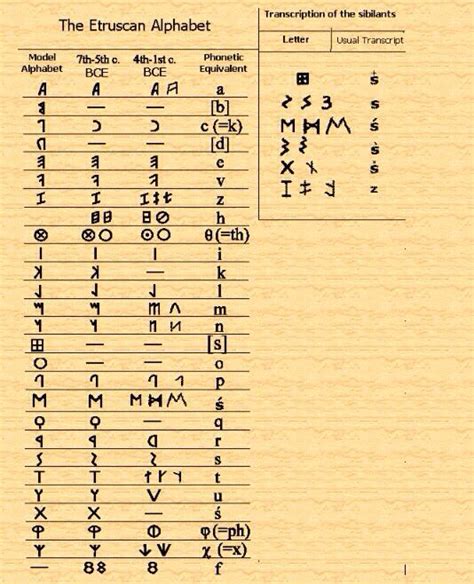 The Etruscan Alphabet
Model Alphabet 7th-5th c. BCE 4th-1st c. BCE Phonetic Equivalent
𐌀 𐌀 𐌀 𐌀 a
𐌁 — — [b]
𐌂 𐌂 𐌂 c (=k)
𐌃 — — [d]
𐌄 𐌄 𐌄 e
𐌅 𐌅 𐌅 v
𐌆 𐌆 𐌆 𐌆 𐌆 z
𐌇 𐌇 𐌇 𐌇 h
𐌈 𐌈 𐌈 𐌈 𐌈 θ (=th)
𐌉 𐌉 𐌉 i
𐌊 𐌊 — k
𐌋 𐌋 𐌋 l
𐌌 𐌌 𐌌 𐌌 m
𐌍 𐌍 𐌍 𐌍 n
𐌎 — — [s]
𐌏 — — o
𐌐 𐌐 𐌐 𐌐 p
𐌑 𐌑 𐌑 𐌑 𐌑 ś
𐌒 𐌒 — q
𐌓 𐌓 𐌓 r
𐌔 𐌔 𐌔 s
𐌕 𐌕 𐌕 𐌕 𐌕 t
𐌖 𐌖 𐌖 u
𐌗 𐌗 — ṡ
𐌘 𐌘 𐌘 φ (=ph)
𐌙 𐌙 𐌙 𐌙 χ (=x)
— 𐌚 𐌚 f
Transcription of the sibilants
Letter Usual Transcript
𐌎 s
𐌔 𐌔 𐌔 s
𐌑 𐌑 𐌑 ś
𐌔 𐌔 s̀
𐌗 𐌗 ṡ
𐌆 𐌆 𐌆 z